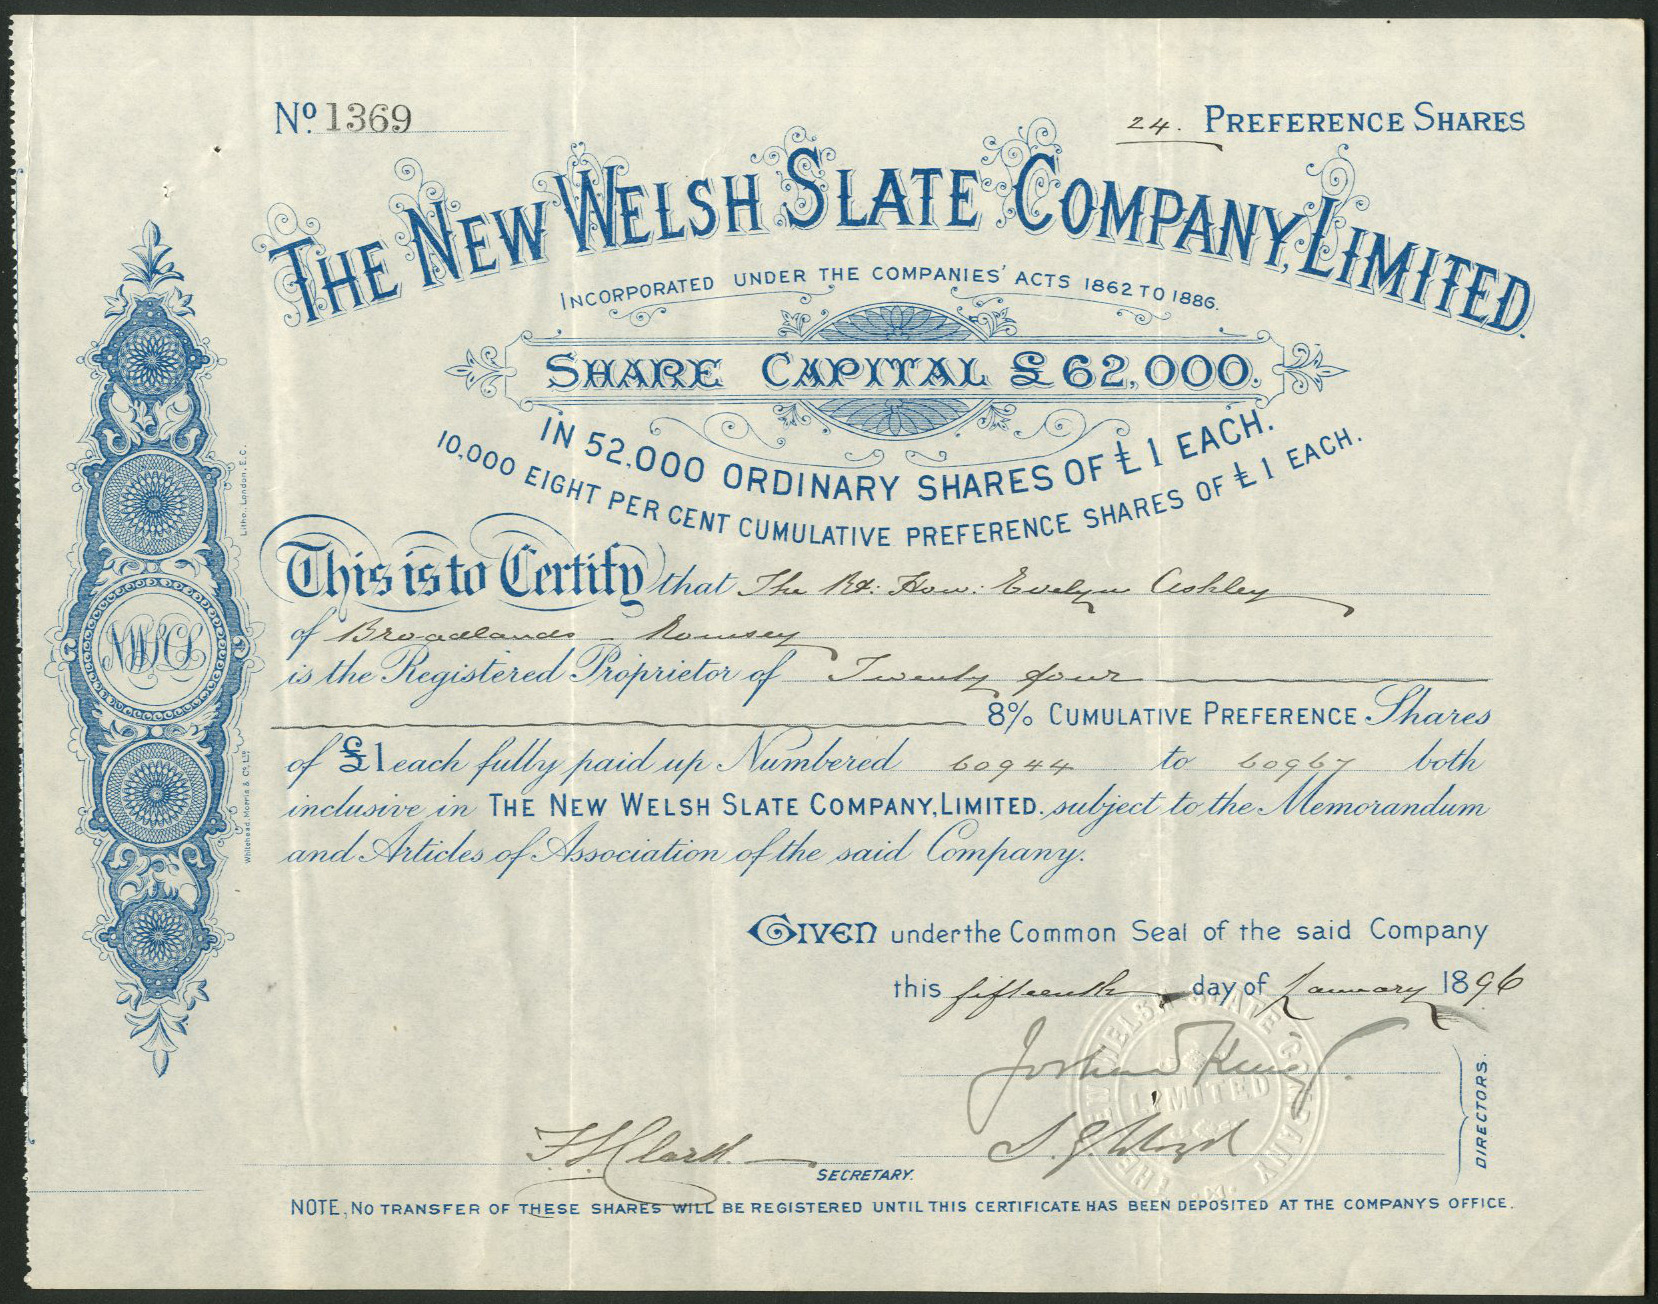 No. 1369
24. PREFERENCE SHARES
THE NEW WELSH SLATE COMPANY, LIMITED.
INCORPORATED UNDER THE COMPANIES' ACTS 1862 TO 1886.
SHARE CAPITAL £62,000.
IN 52,000 ORDINARY SHARES OF £1 EACH.
10,000 EIGHT PER CENT CUMULATIVE PREFERENCE SHARES OF £1 EACH.
This is to Certify that The Rt: Hon: Evelyn Ashley
of Broadlands - Romsey
is the Registered Proprietor of Twenty four
8% CUMULATIVE PREFERENCE Shares
of £1 each fully paid up Numbered 60944 to 60967 both
inclusive in THE NEW WELSH SLATE COMPANY, LIMITED. subject to the Memorandum
and Articles of Association of the said Company.
GIVEN under the Common Seal of the said Company
this fifteenth day of January 1896
DIRECTORS.
F. S. Clark.
SECRETARY.
NOTE, NO TRANSFER OF THESE SHARES WILL BE REGISTERED UNTIL THIS CERTIFICATE HAS BEEN DEPOSITED AT THE COMPANYS OFFICE.
NWSCL
Whitehead, Morris & Co. Ltd. Litho., London, E.C.
THE NEW WELSH SLATE COMPANY
LIMITED